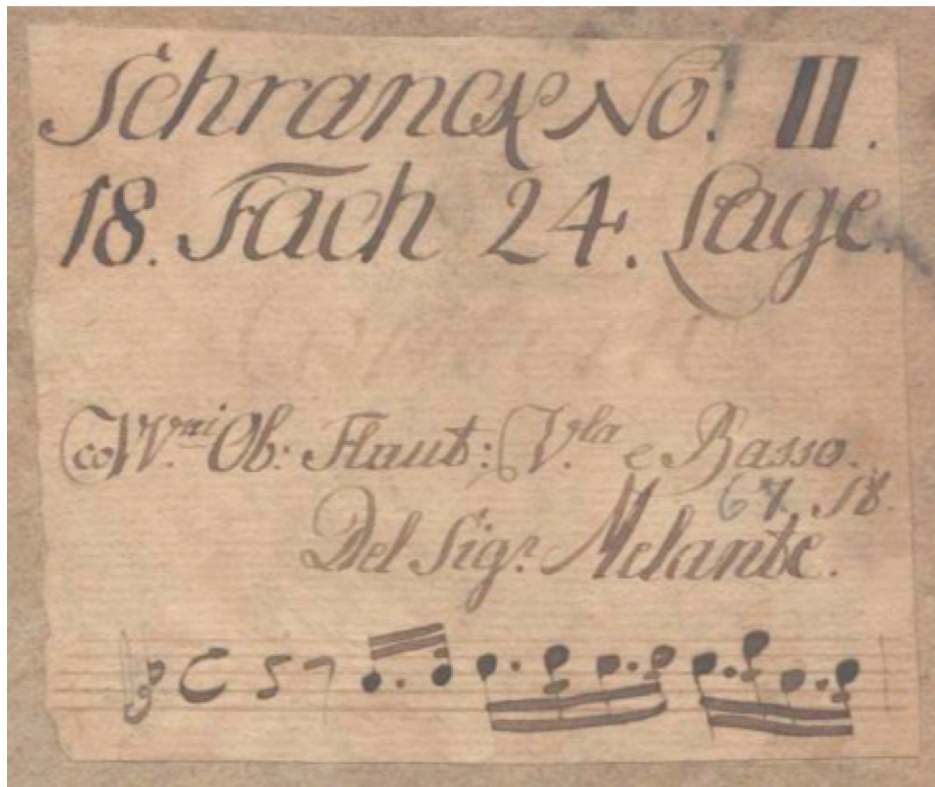 Schranck No: II.
18. Fach 24. Lage.
co VV.ni Ob: Flaut: V.la e Basso.
67. St.
Del Sig.r Melante.